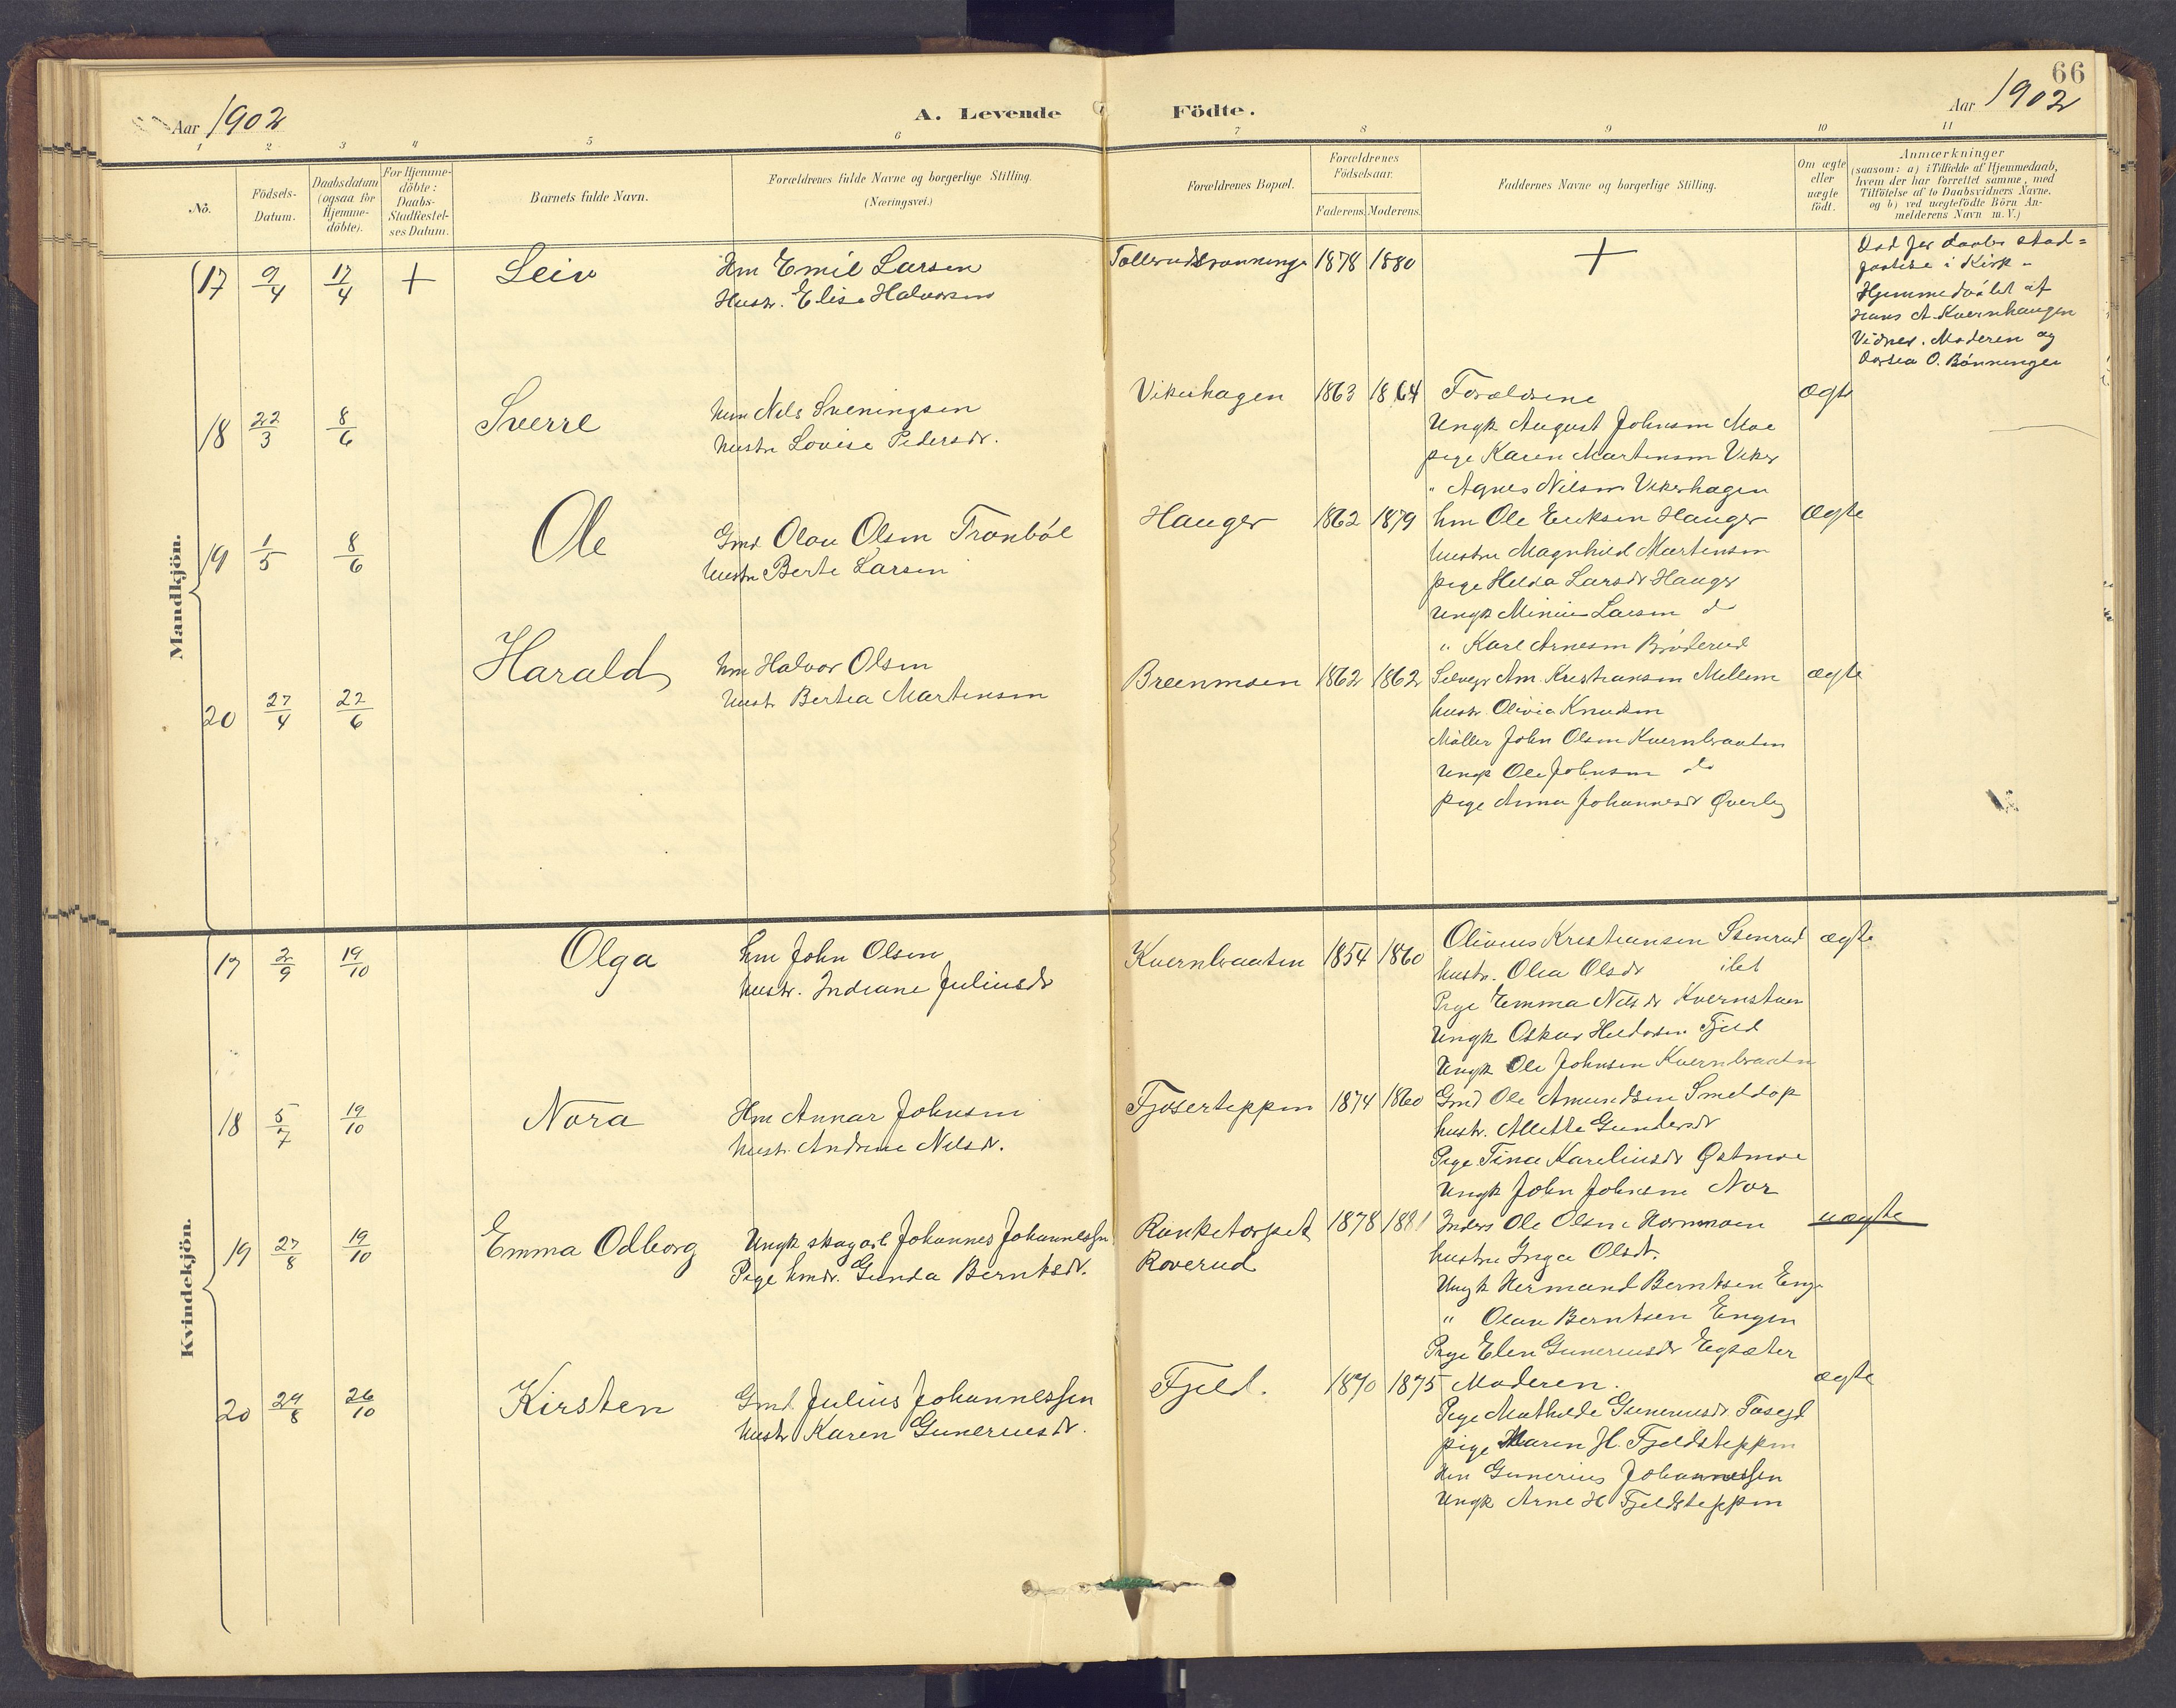 66
Aar 1902
A. Levende Födte.
Aar 1902
1 2 3 4 5 6 7 8 9 10 11
No.
Födsels-
Datum.
Daabsdatum
(ogsaa for
Hjemme-
döbte).
For Hjemme-
döbte:
Daabs-
Stadfæstel-
ses Datum.
Barnets fulde Navn.
Forældrenes fulde Navne og borgerlige Stilling.
(Næringsvei.)
Forældrenes Bopæl.
Forældrenes
Födselsaar.
Faderens. Moderens.
Faddernes Navne og borgerlige Stilling.
Om ægte
eller
uægte
födt.
Anmærkninger
(saasom: a) i Tilfælde af Hjemmedaab,
hvem der har forrettet samme, med
Tilföielse af to Daabsvidners Navne,
og b) ved uægtefödte Börn An-
melderens Navn m.V.)
Mandkjön.
17 9/4 17/4 + Leiv
Hm Emil Larsen
Hustr. Elise Halvorsen
1878 1880 +
Död før daabs stad=
i Kirk-
Hjemmedøbt af
Hans A. Kvernhaugen
Vidner. Moderen og
O. Bönninger
18 22/3 8/6 Sverre
hm Nils Sveningsen
hustru Lovise Pedersdr.
Vikerhagen 1863 1864 Forældrene ægte
Ungk August Johnsen Moe
pige Karen Martinsen Viker
" Agnes Nilsen Vikerhagen
19 1/5 8/6 Ole
Gmd Olav Olsen Tranböl
hustru Berte Larsen
Hauger 1862 1879 hm Ole Eriksen Hauger ægte
hustru Magnhild Martinsen
pige Hilda Larsdr Hauger
Ungk Minius Larsen do
" Karl Arnesen Bröderud
20 27/4 22/6 Harald
hm Halvor Olsen
hust Bertea Martinsen
Breenmoen 1862 1862 Selveg Am. Kristiansen Mellem ægte
hustr Olivia Knudsen
Möller John Olsen Kvernbraaten
Ungk Ole Johnsen do
pige Anna Johannesdr Øverby
Kvindekjön.
17 2/9 19/10 Olga
hm John Olsen
hustr. Indiane Juliusdr
Kvernbraaten 1854 1860 Olivius Kristiansen Stenrud ægte
hustr. Olea Olsdr ibd
Pige Emma Nilsdr Kvernstuen
Ungk Oskar Hildorsen Fjeld
Ungk Ole Johnsen Kvernbraaten
18 5/7 19/10 Nora
Hm Annar Johnsen
hustr. Andrine Nilsdr.
Fjöserteppen 1874 1860 Gmd Ole Amundsen Smeldop
hustr. Alette Gundersdr
Pige Tina Kareliusdr Østmoe
Ungk John Johnsen Nor
19 27/8 19/10 Emma Odborg
Ungk skogarb Johannes Johannessen
Pige hmdr. Gunda Berntsdr.
Ranketorpet
Roverud
1878 1881 Inders Ole Olsen Hornmoen uægte
hustru Inga Olsdr.
Ungk Hermand Berntsen Enge
" Olav Berntsen Engen
Pige Elen Gunneriusdr Egsæter
20 29/8 26/10 Kirsten
Gmd. Julius Johannessen
hustr Karen Guneriusdr.
Fjeld. 1870 1875 Moderen. ægte
Pige Mathilde Guneriusdr.
pige Maren H. Fjeldsteppen
Hm Gunerius Johannessen
Ungk Arne H Fjeldsteppen